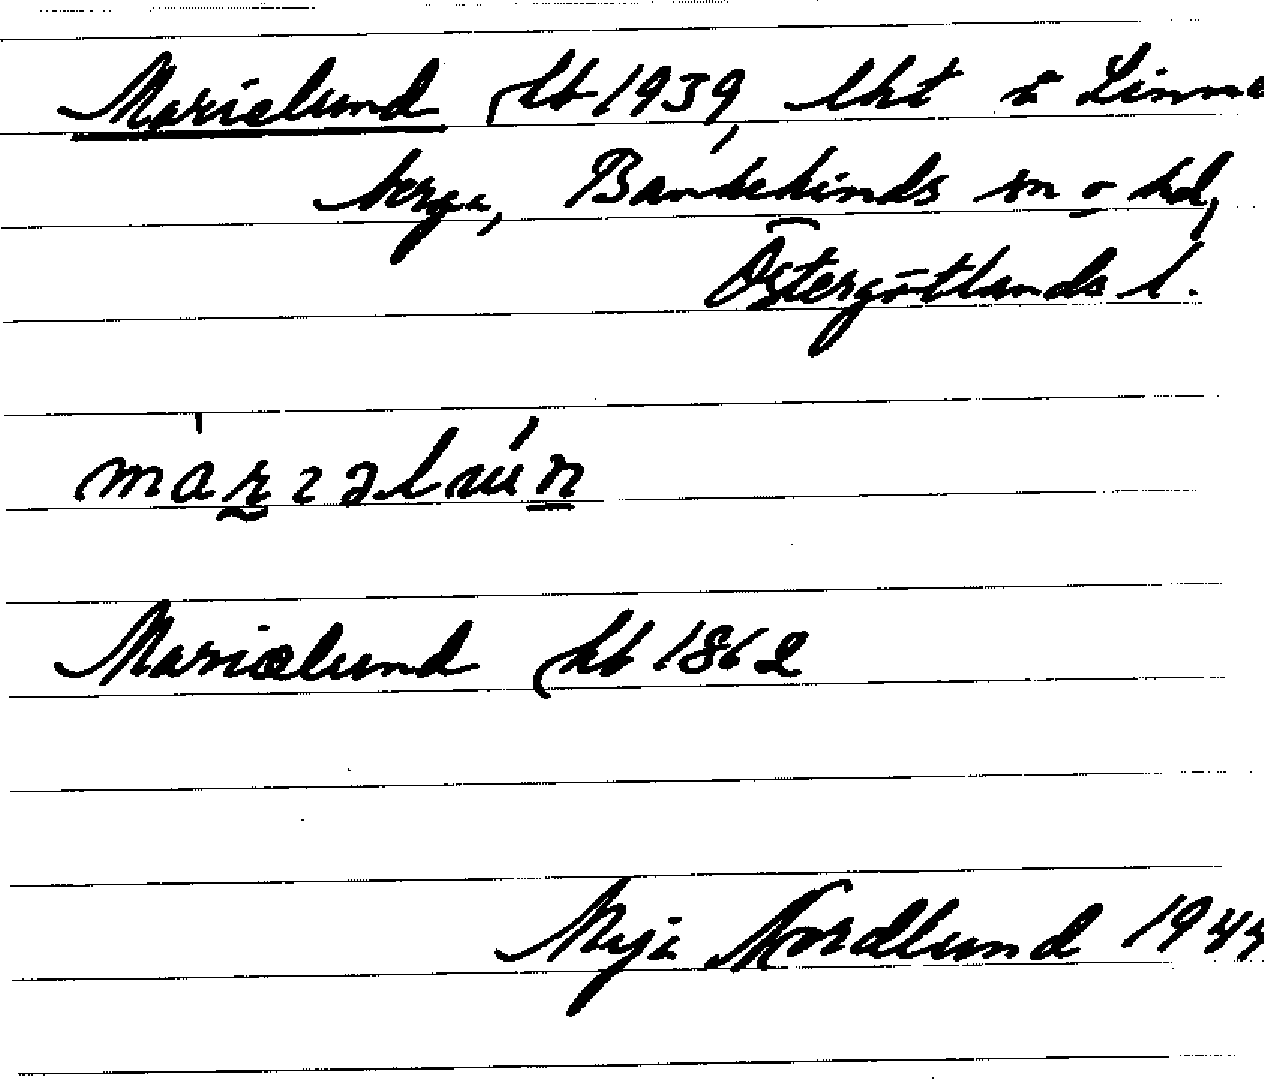 Marielund hb 1939, lht å Linne
berga, Bankekinds sn o hd,
Östergötlands l.
Mariælund hb 1862
Maja Nordlund 1944